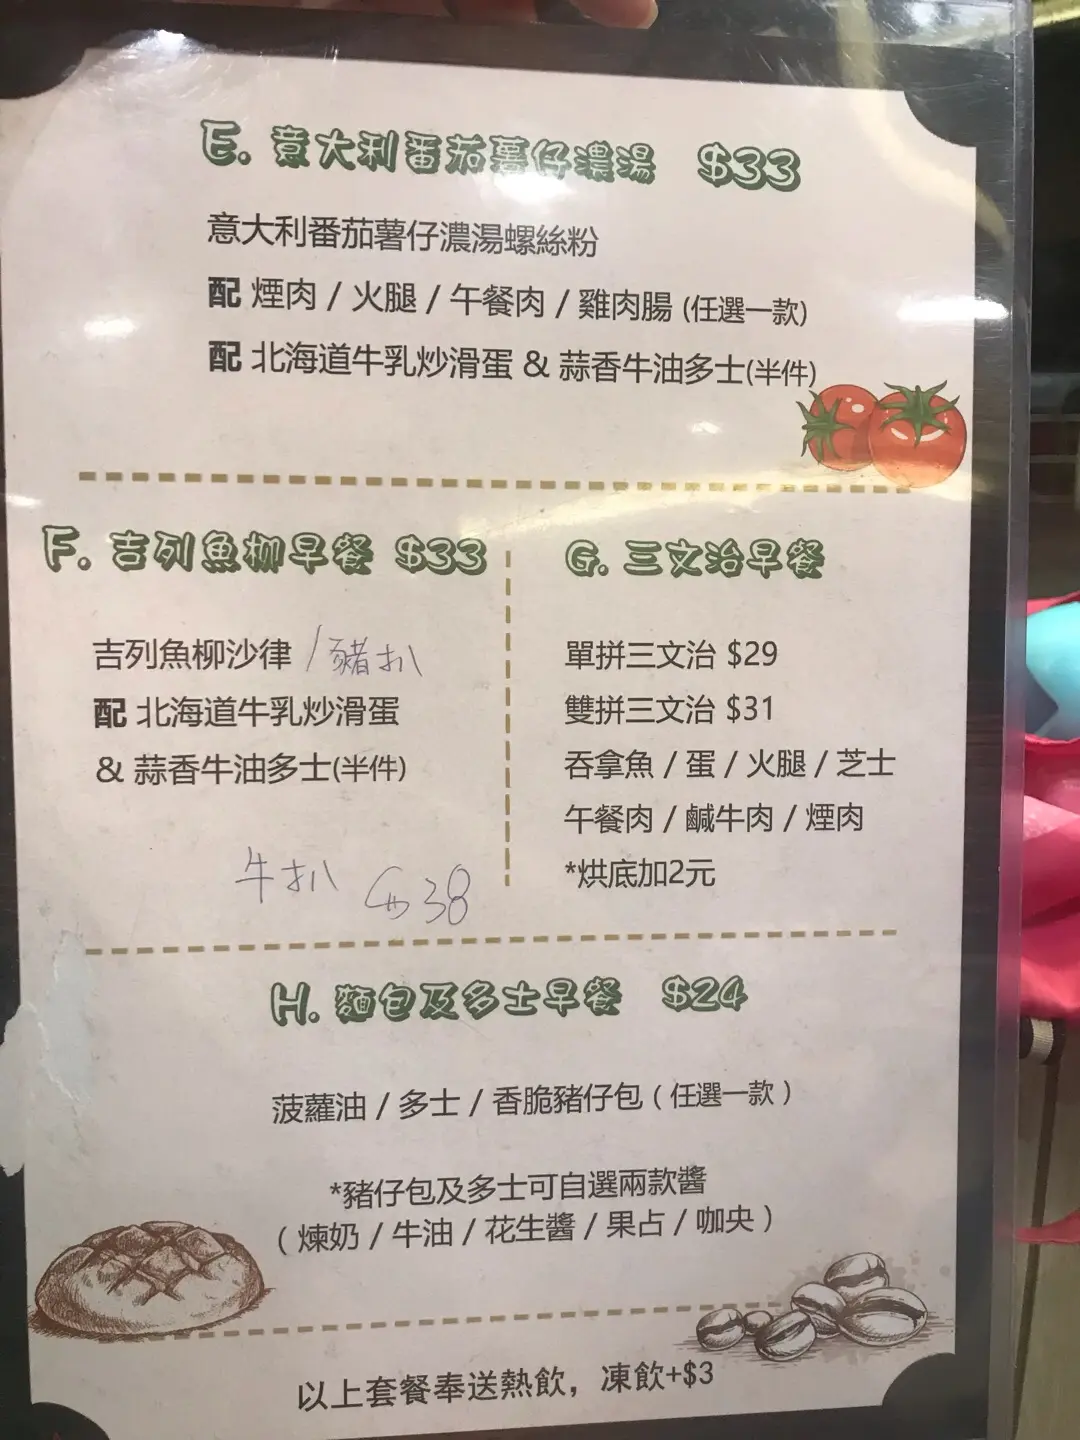 E. 意大利番茄薯仔濃湯 $33
意大利番茄薯仔濃湯螺絲粉
配 煙肉 / 火腿 / 午餐肉 / 雞肉腸 (任選一款)
配 北海道牛乳炒滑蛋 & 蒜香牛油多士(半件)
F. 吉列魚柳早餐 $33
吉列魚柳沙律 / 豬扒
配 北海道牛乳炒滑蛋
& 蒜香牛油多士(半件)
牛扒 $38
G. 三文治早餐
單拼三文治 $29
雙拼三文治 $31
吞拿魚 / 蛋 / 火腿 / 芝士
午餐肉 / 鹹牛肉 / 煙肉
*烘底加2元
H. 麵包及多士早餐 $24
菠蘿油 / 多士 / 香脆豬仔包 ( 任選一款 )
*豬仔包及多士可自選兩款醬
( 煉奶 / 牛油 / 花生醬 / 果占 / 咖央 )
以上套餐奉送熱飲，凍飲+$3